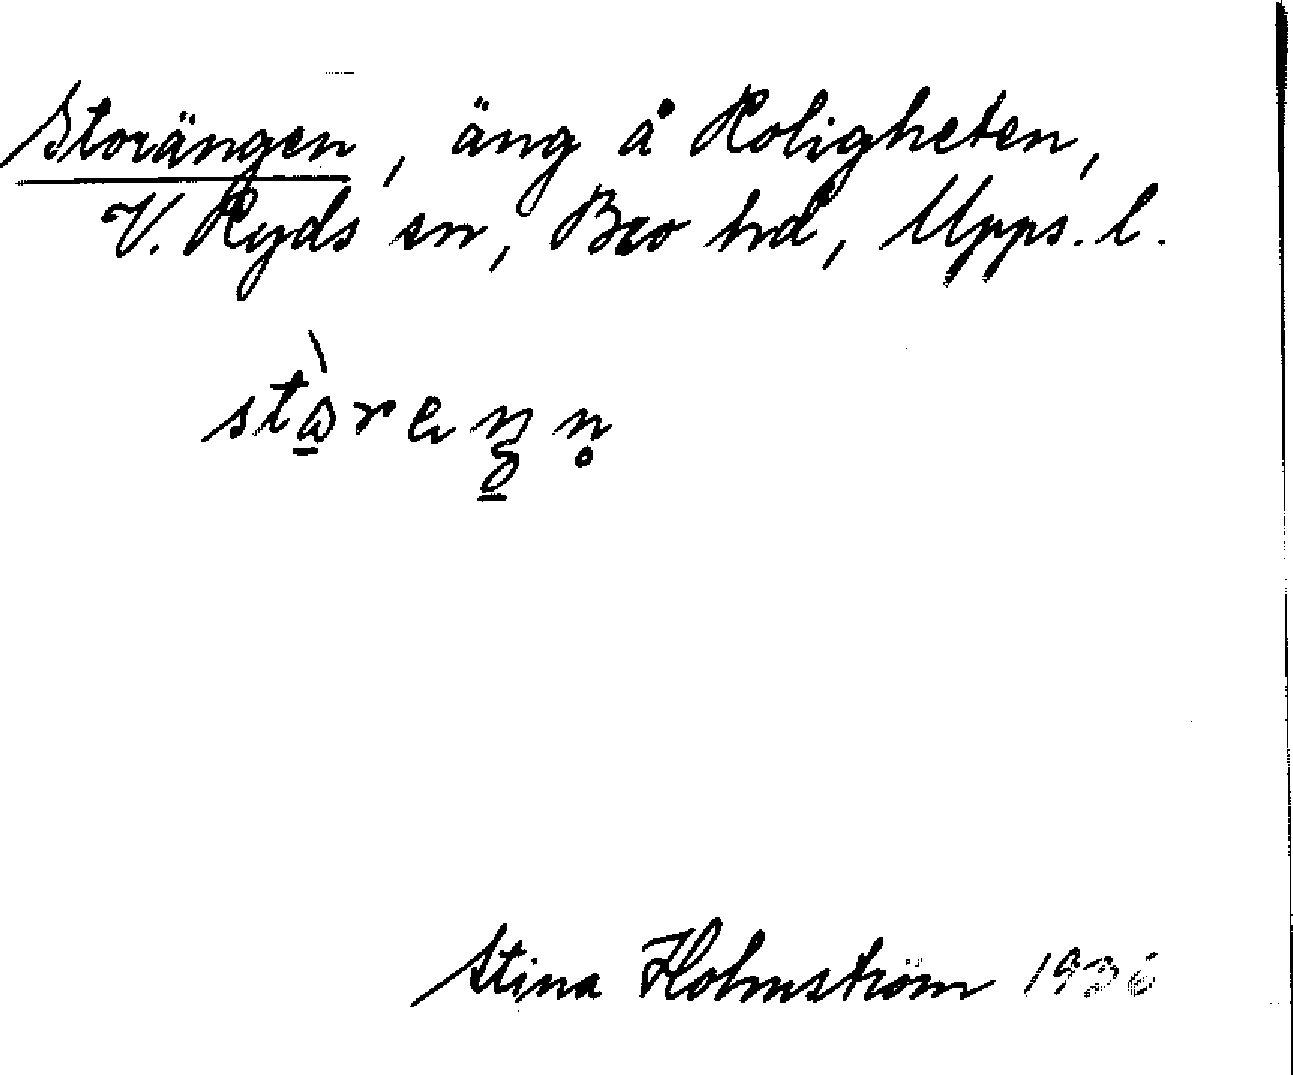 Storängen, äng å Roligheten,
V. Ryds sn, Bro hd, Upps. l.
Stina Holmström 1936